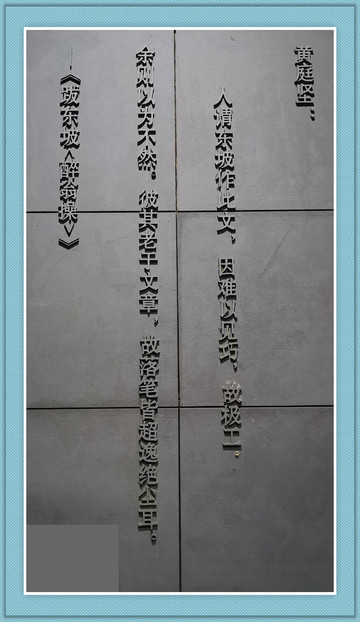 黄庭坚：
人谓东坡作此文，因难以见巧，故极工。
余则以为不然。彼其老于文章，故落笔皆超逸绝尘耳。
——《跋东坡〈醉翁操〉》